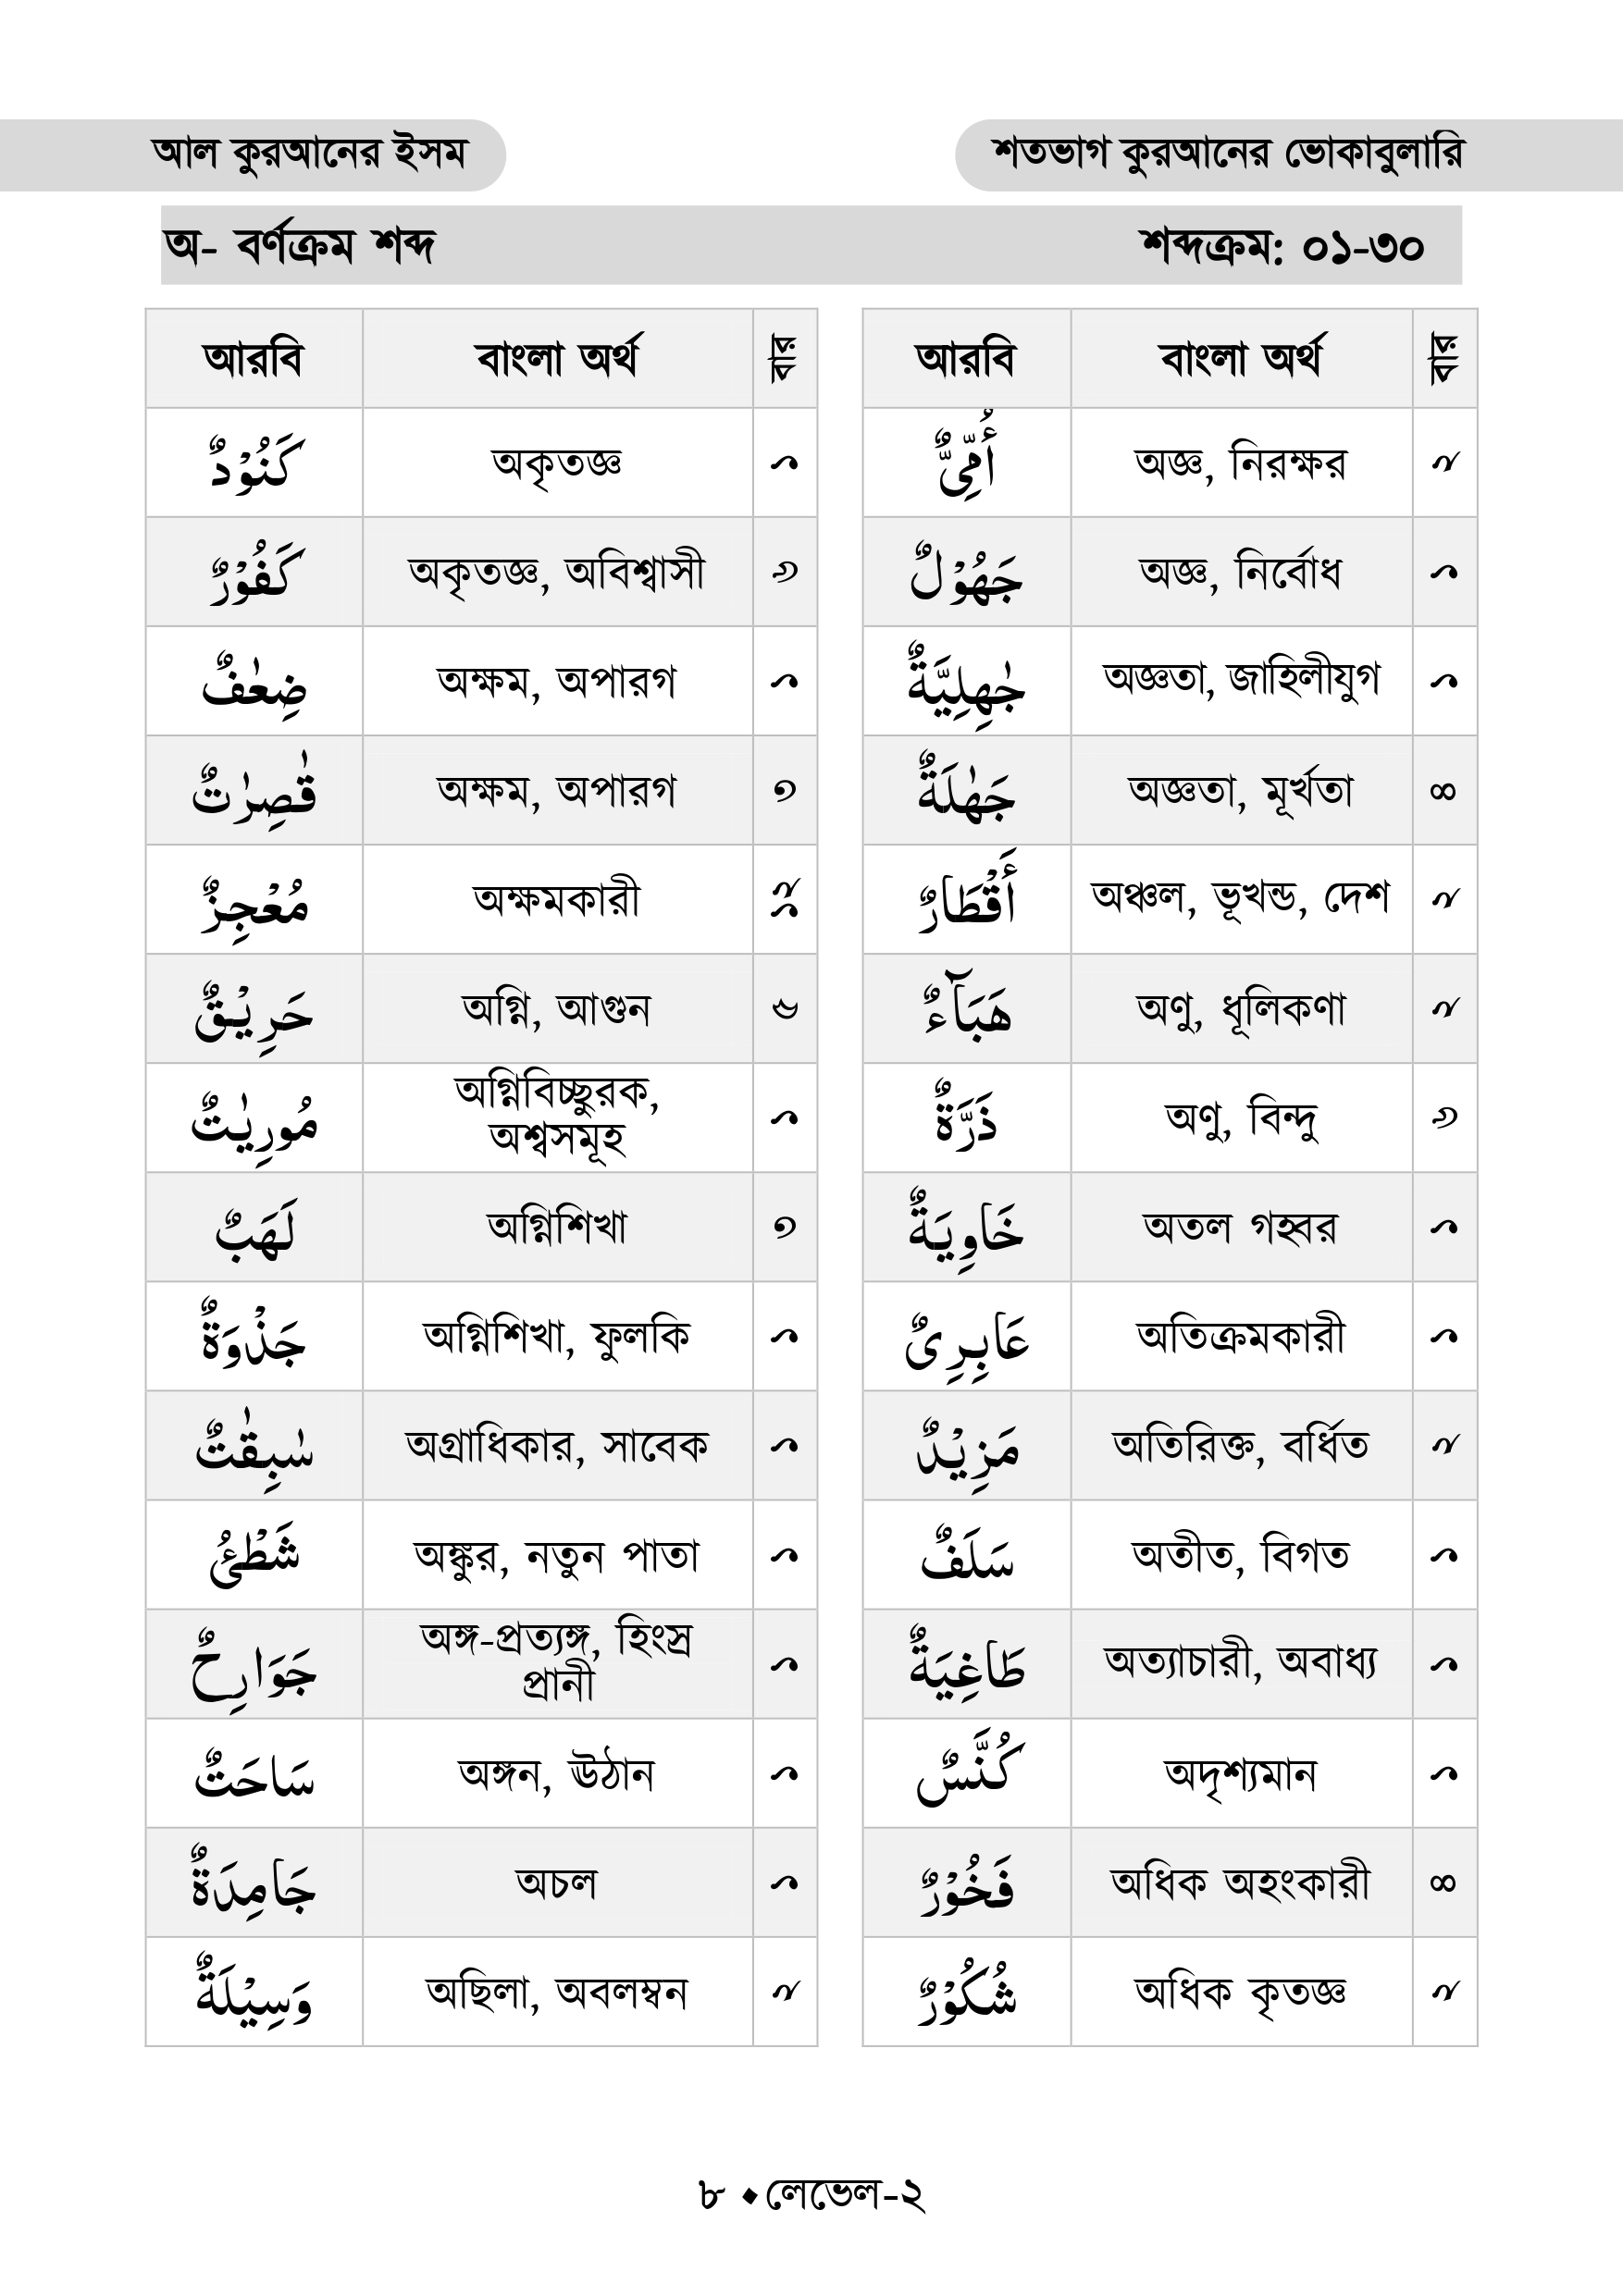 আল কুরআনের ইসম
শতভাগ কুরআনের ভোকাবুলারি
অ- বর্ণক্রম শব্দ শব্দক্রম: ০১-৩০
আরবি বাংলা অর্থ বার
كَنُوْدٌ অকৃতজ্ঞ ১
كَفُوْرٌ অকৃতজ্ঞ, অবিশ্বাসী ৬
ضِعٰفٌ অক্ষম, অপারগ ১
قٰصِرٰتٌ অক্ষম, অপারগ ৩
مُعْجِزٌ অক্ষমকারী ১২
حَرِيْقٌ অগ্নি, আগুন ৫
مُورِيٰتٌ অগ্নিবিচ্ছুরক,
অশ্বসমূহ ১
لَهَبٌ অগ্নিশিখা ৩
جَذْوَةٌ অগ্নিশিখা, ফুলকি ১
سٰبِقٰتٌ অগ্রাধিকার, সাবেক ১
شَطْئٌ অঙ্কুর, নতুন পাতা ১
جَوَارِحٌ অঙ্গ-প্রত্যঙ্গ, হিংস্র
প্রানী ১
سَاحَتٌ অঙ্গন, উঠান ১
جَامِدَةٌ অচল ১
وَسِيْلَةٌ অছিলা, অবলম্বন ২
আরবি বাংলা অর্থ বার
أُمِّىٌّ অজ্ঞ, নিরক্ষর ২
جَهُوْلٌ অজ্ঞ, নির্বোধ ১
جٰهِلِيَّةٌ অজ্ঞতা, জাহিলীযুগ ১
جَهٰلَةٌ অজ্ঞতা, মূর্খতা ৪
أَقْطَارٌ অঞ্চল, ভূখন্ড, দেশ ২
هَبَآءٌ অণু, ধূলিকণা ২
ذَرَّةٌ অণু, বিন্দু ৬
خَاوِيَةٌ অতল গহ্বর ১
عَابِرِىٌ অতিক্রমকারী ১
مَزِيْدٌ অতিরিক্ত, বর্ধিত ২
سَلَفٌ অতীত, বিগত ১
طَاغِيَةٌ অত্যাচারী, অবাধ্য ১
كُنَّسٌ অদৃশ্যমান ১
فَخُوْرٌ অধিক অহংকারী ৪
شُكُوْرٌ অধিক কৃতজ্ঞ ২
৮ ⬥ লেভেল-২